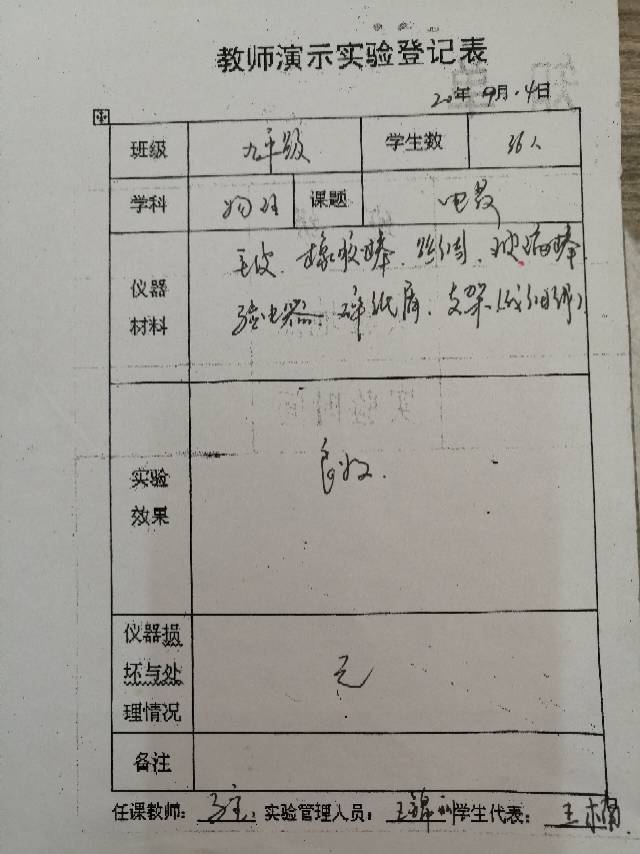 教师演示实验登记表
20年9月4日
班级 九年级 学生数 36人
学科 物理 课题 电荷
仪器材料 毛皮、橡胶棒、丝绸、玻璃棒
验电器、碎纸屑、支架(或细绳)
实验效果 良好.
仪器损坏与处理情况 无
备注
任课教师: 实验管理人员: 王锦 学生代表: 王楠